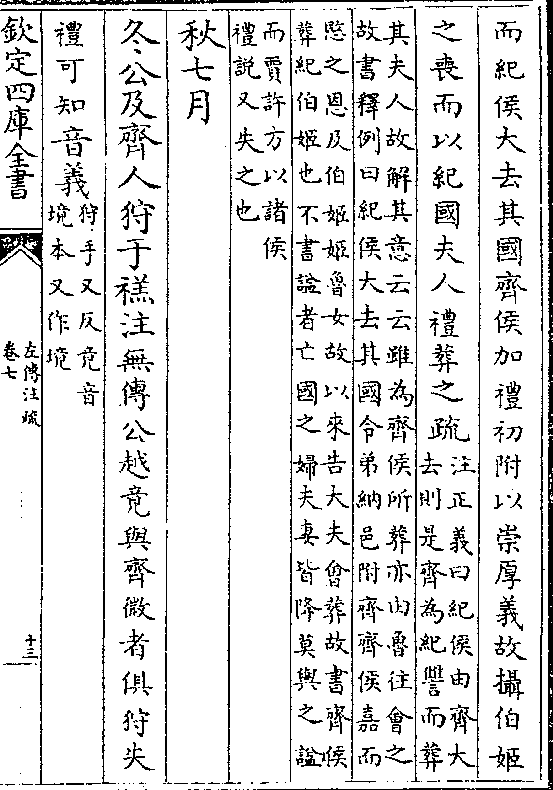 而紀侯大去其國齊侯加禮初附以崇厚義故攝伯姬
之喪而以紀國夫人禮葬之疏
注正義曰紀侯由齊大
去則是齊為紀讐而葬
其夫人故解其意云云雖為齊侯所葬亦由魯往會之
故書釋例曰紀侯大去其國令弟納邑附齊齊侯嘉而
愍之恩及伯姬姬魯女故以來告大夫會葬故書齊侯
葬紀伯姬也不書諡者亡國之婦夫妻皆降莫與之諡
而賈許方以諸侯
禮説又失之也
秋七月
冬公及齊人狩于禚注無傳公越竟與齊微者俱狩失
禮可知音義
狩手又反竟音
境本又作境
欽定四庫全書
左傳注疏
卷七
十三